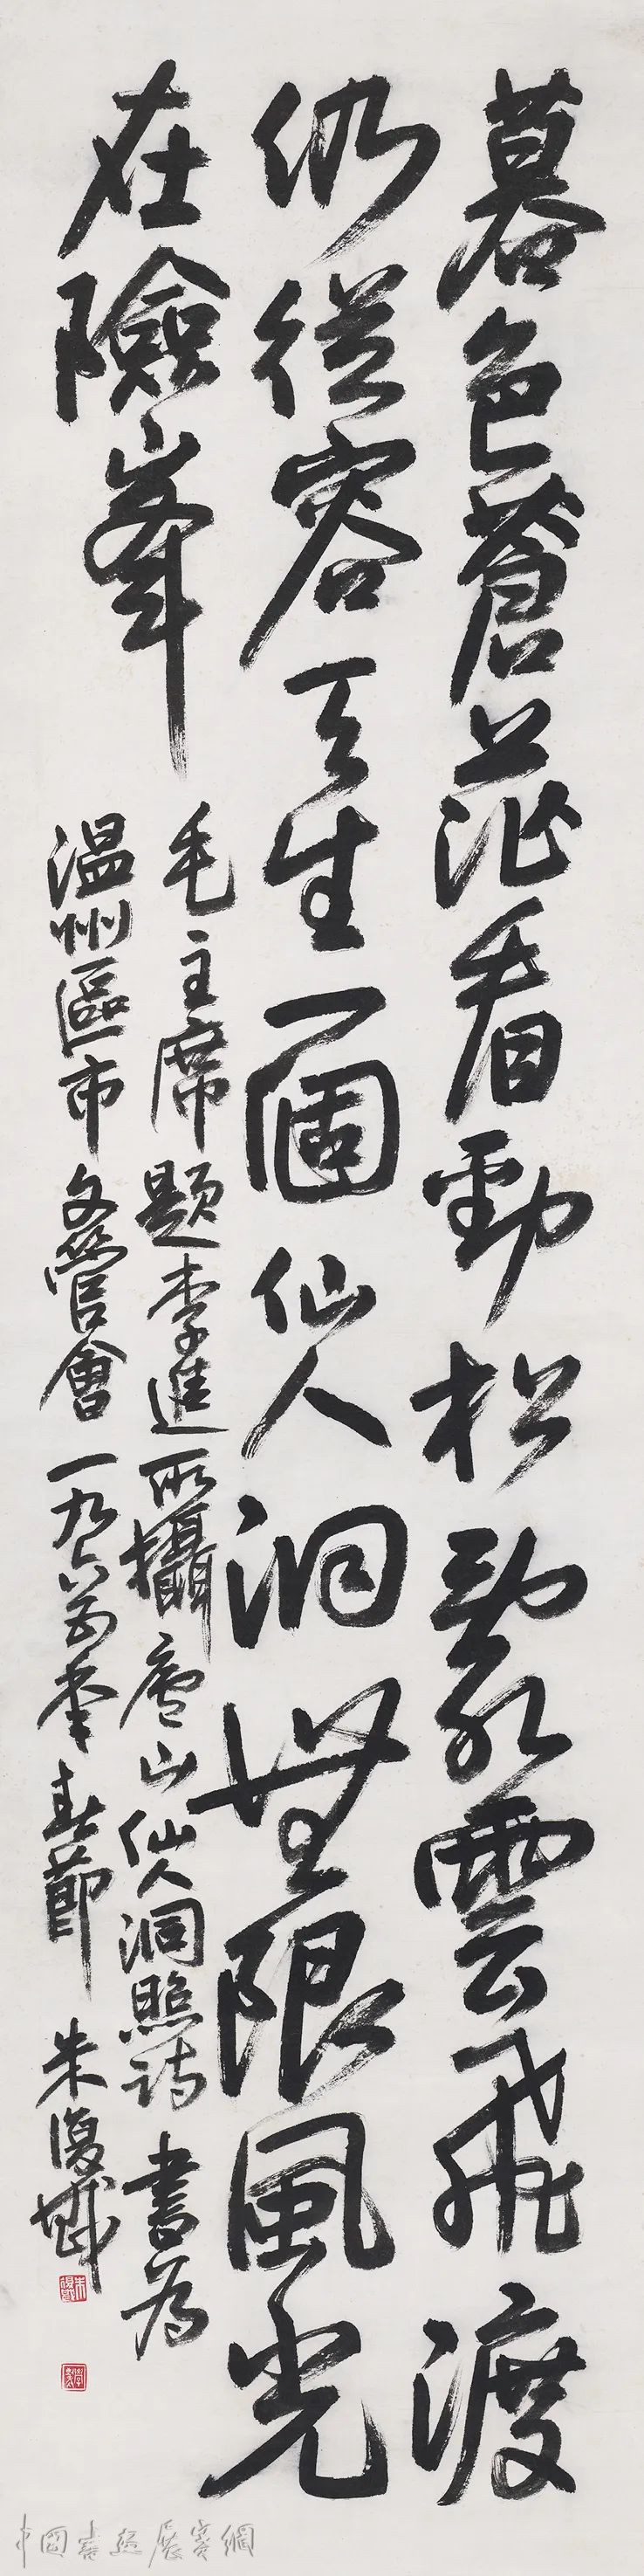 暮色蒼茫看勁松亂雲飛渡
仍從容天生一個仙人洞無限風光
在險峯
毛主席題李進所攝廬山仙人洞照詩書為
溫州區市文管會一九六年春節朱復戡
中國書法展賽網